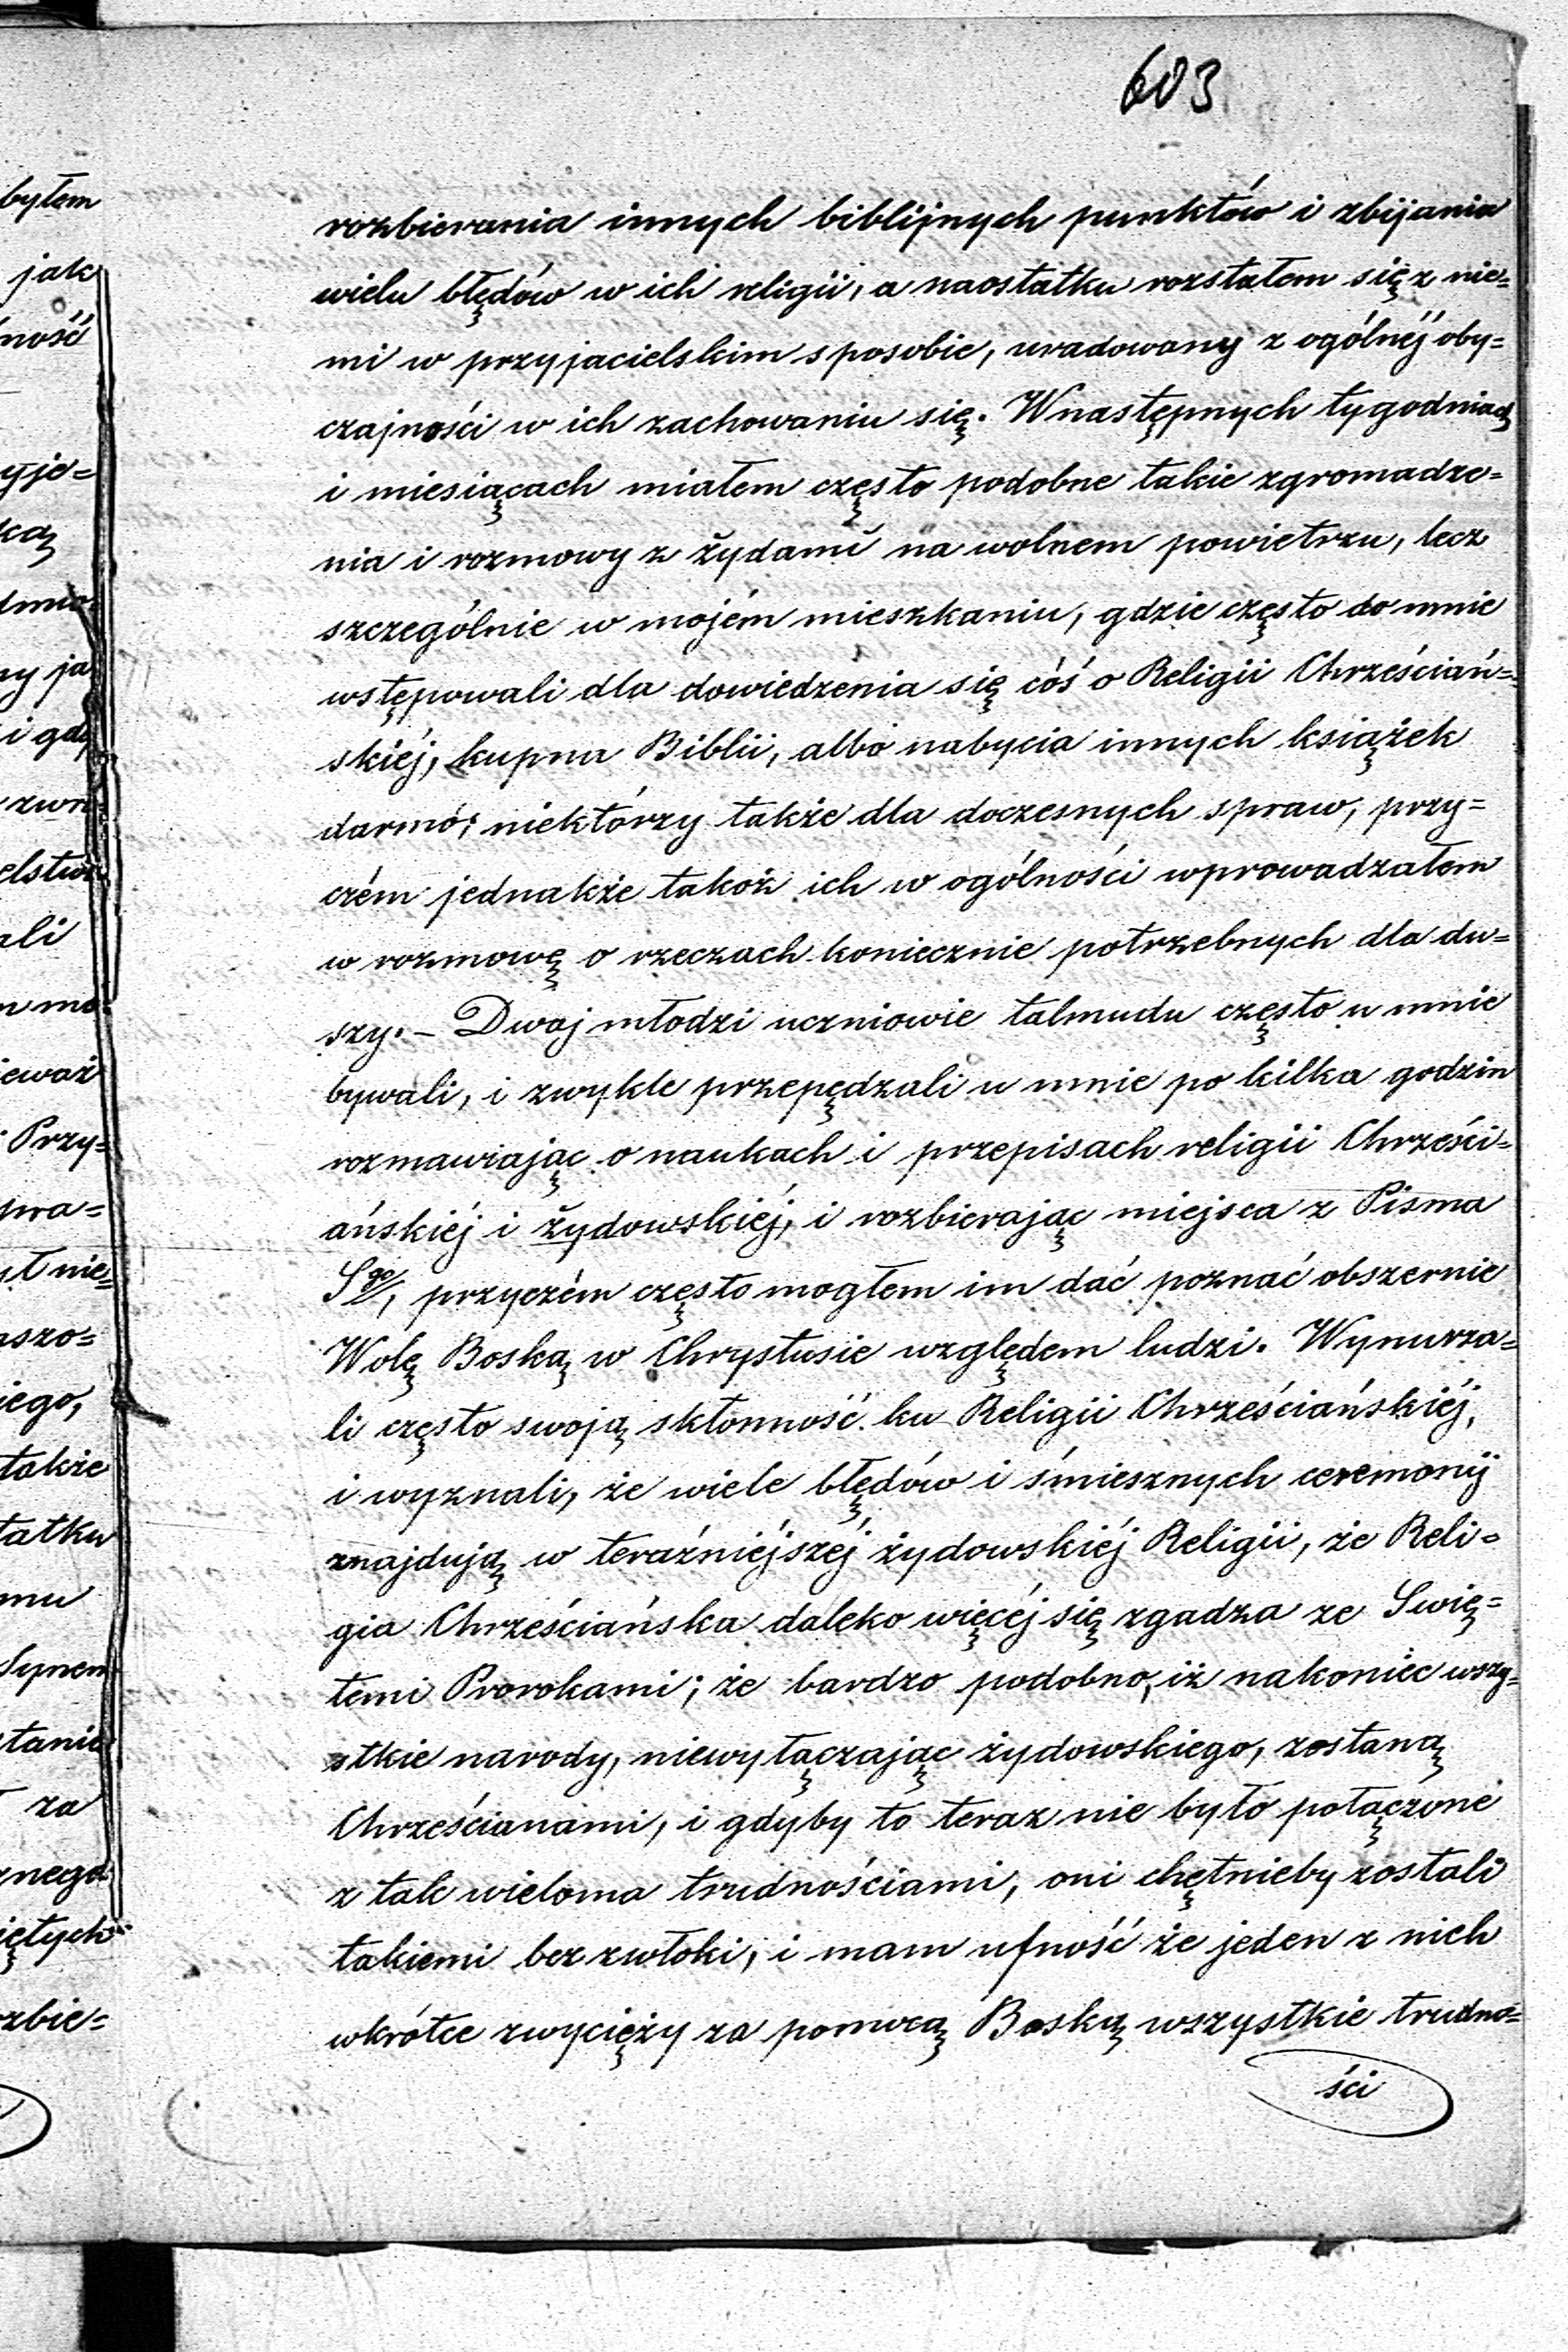 603
rozbierania innych biblijnych punktów i zbijania
wielu błędów w ich religii, a naostatku rozstałem się z nie=
mi w przyjacielskim sposobie, uradowany z ogólnéj oby=
czajności w ich zachowaniu się. Wnastępnych tygodniach
i miesiącach miałem często podobne takie zgromadze=
nia i rozmowy z żydami na wolnem powietrzu, lecz
szczególnie w mojém mieszkaniu, gdzie często do mnie
wstępowali dla dowiedzenia się cóś o Religii Chrześciań=
skiéj, kupna Biblii, albo nabycia innych książek
darmo; niektórzy także dla doczesnych spraw, przy=
czém jednakże takoż ich w ogólności wprowadzałem
w rozmowę o rzeczach koniecznie potrzebnych dla du=
szy. – Dwaj młodzi uczniowie talmudu często u mnie
bywali, i zwykle przepędzali u mnie po kilka godzin
rozmawiając o naukach i przepisach religii Chrześci=
ańskiéj i żydowskiéj, i rozbierając miejsca z Pisma
Sgo, przyczém często mogłem im dać poznać obszernie
Wolę Boską w Chrystusie względem ludzi. Wynurza=
li często swoją skłonność ku Religii Chrześciańskiéj,
i wyznali, że wiele błędów i śmiesznych ceremonij
znajdują w teraźniéjszéj żydowskiéj Religii, że Reli=
gia Chrześciańska daleko więcéj się zgadza ze Swię=
temi Prorokami; że bardzo podobno, iż nakoniec wszy=
stkie narody, niewyłączając żydowskiego, zostaną
Chrześcianami, i gdyby to teraz nie było połączone
z tak wieloma trudnościami, oni chętnieby zostali
takiemi bez zwłoki; i mam ufność że jeden z nich
wkrótce zwycięży za pomocą Boską wszystkie trudno=
ści
byłem
jak
ność
yje=
ką
ny ja
i gdy
elstwa
ali
ieważ
Przy=
pra=
ł nie=
aszo=
iego,
także
tatku
mu
Synem
stanie
za
znego
iętych
zbie=